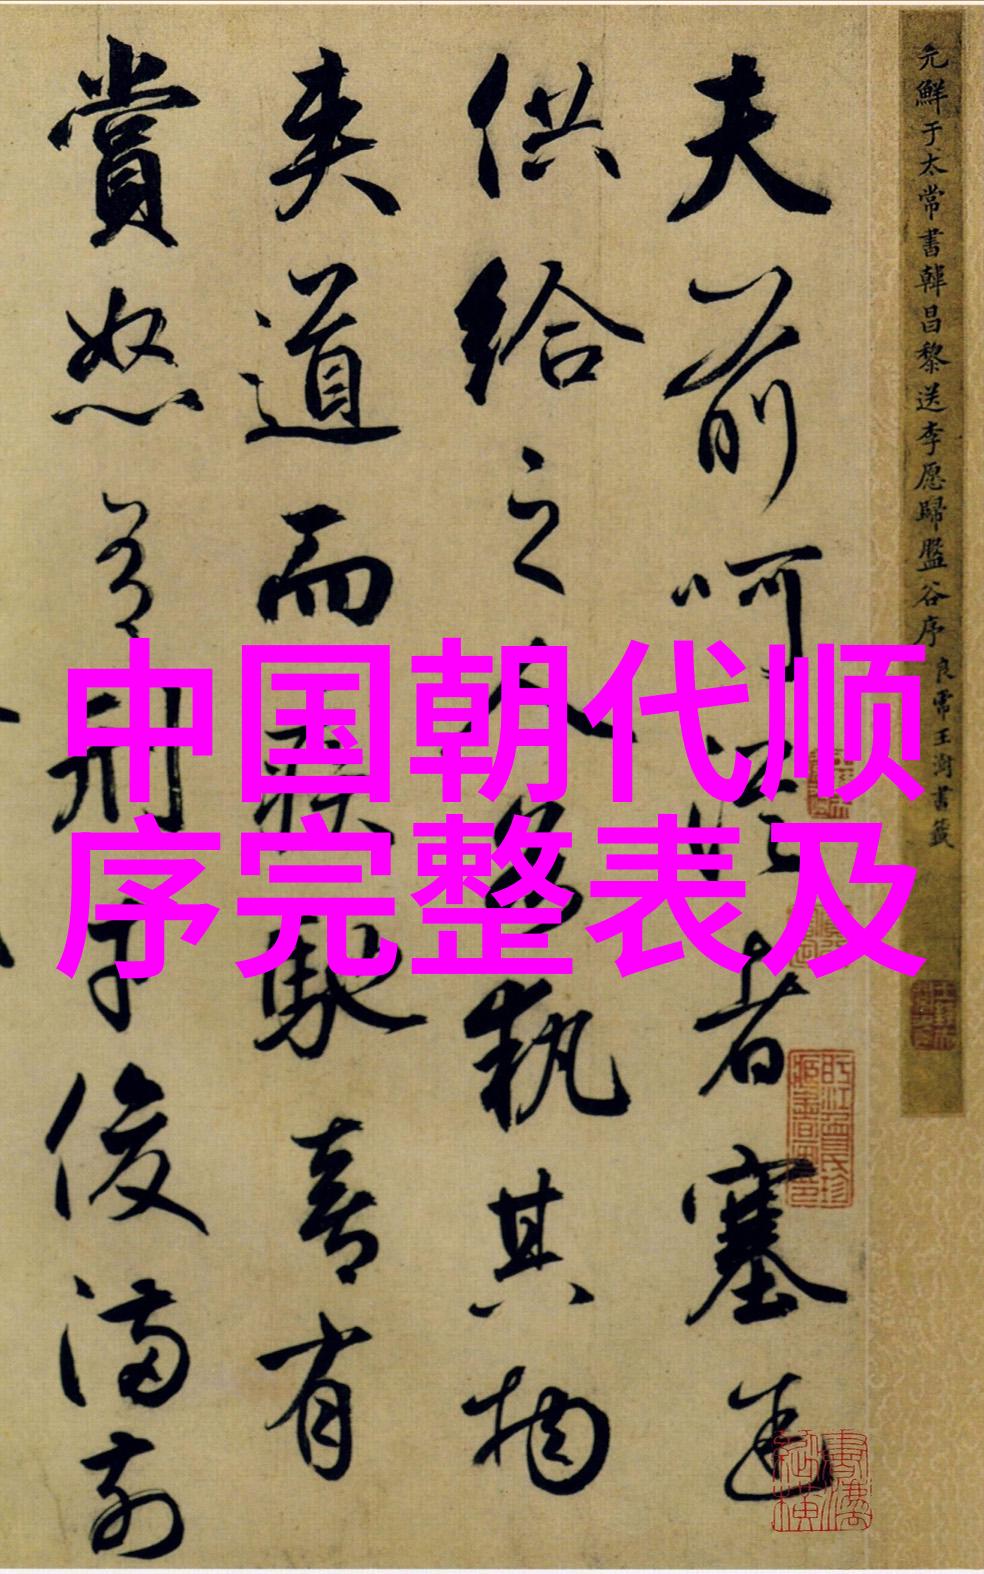 中国朝代顺
序完整表及
元鮮于太常書韓昌黎送李愿歸盤谷序 良常王澍書籤
夫前呵從者塞途
供給之人各執其物
夾道而疾馳喜有
賞怒有刑才俊滿前